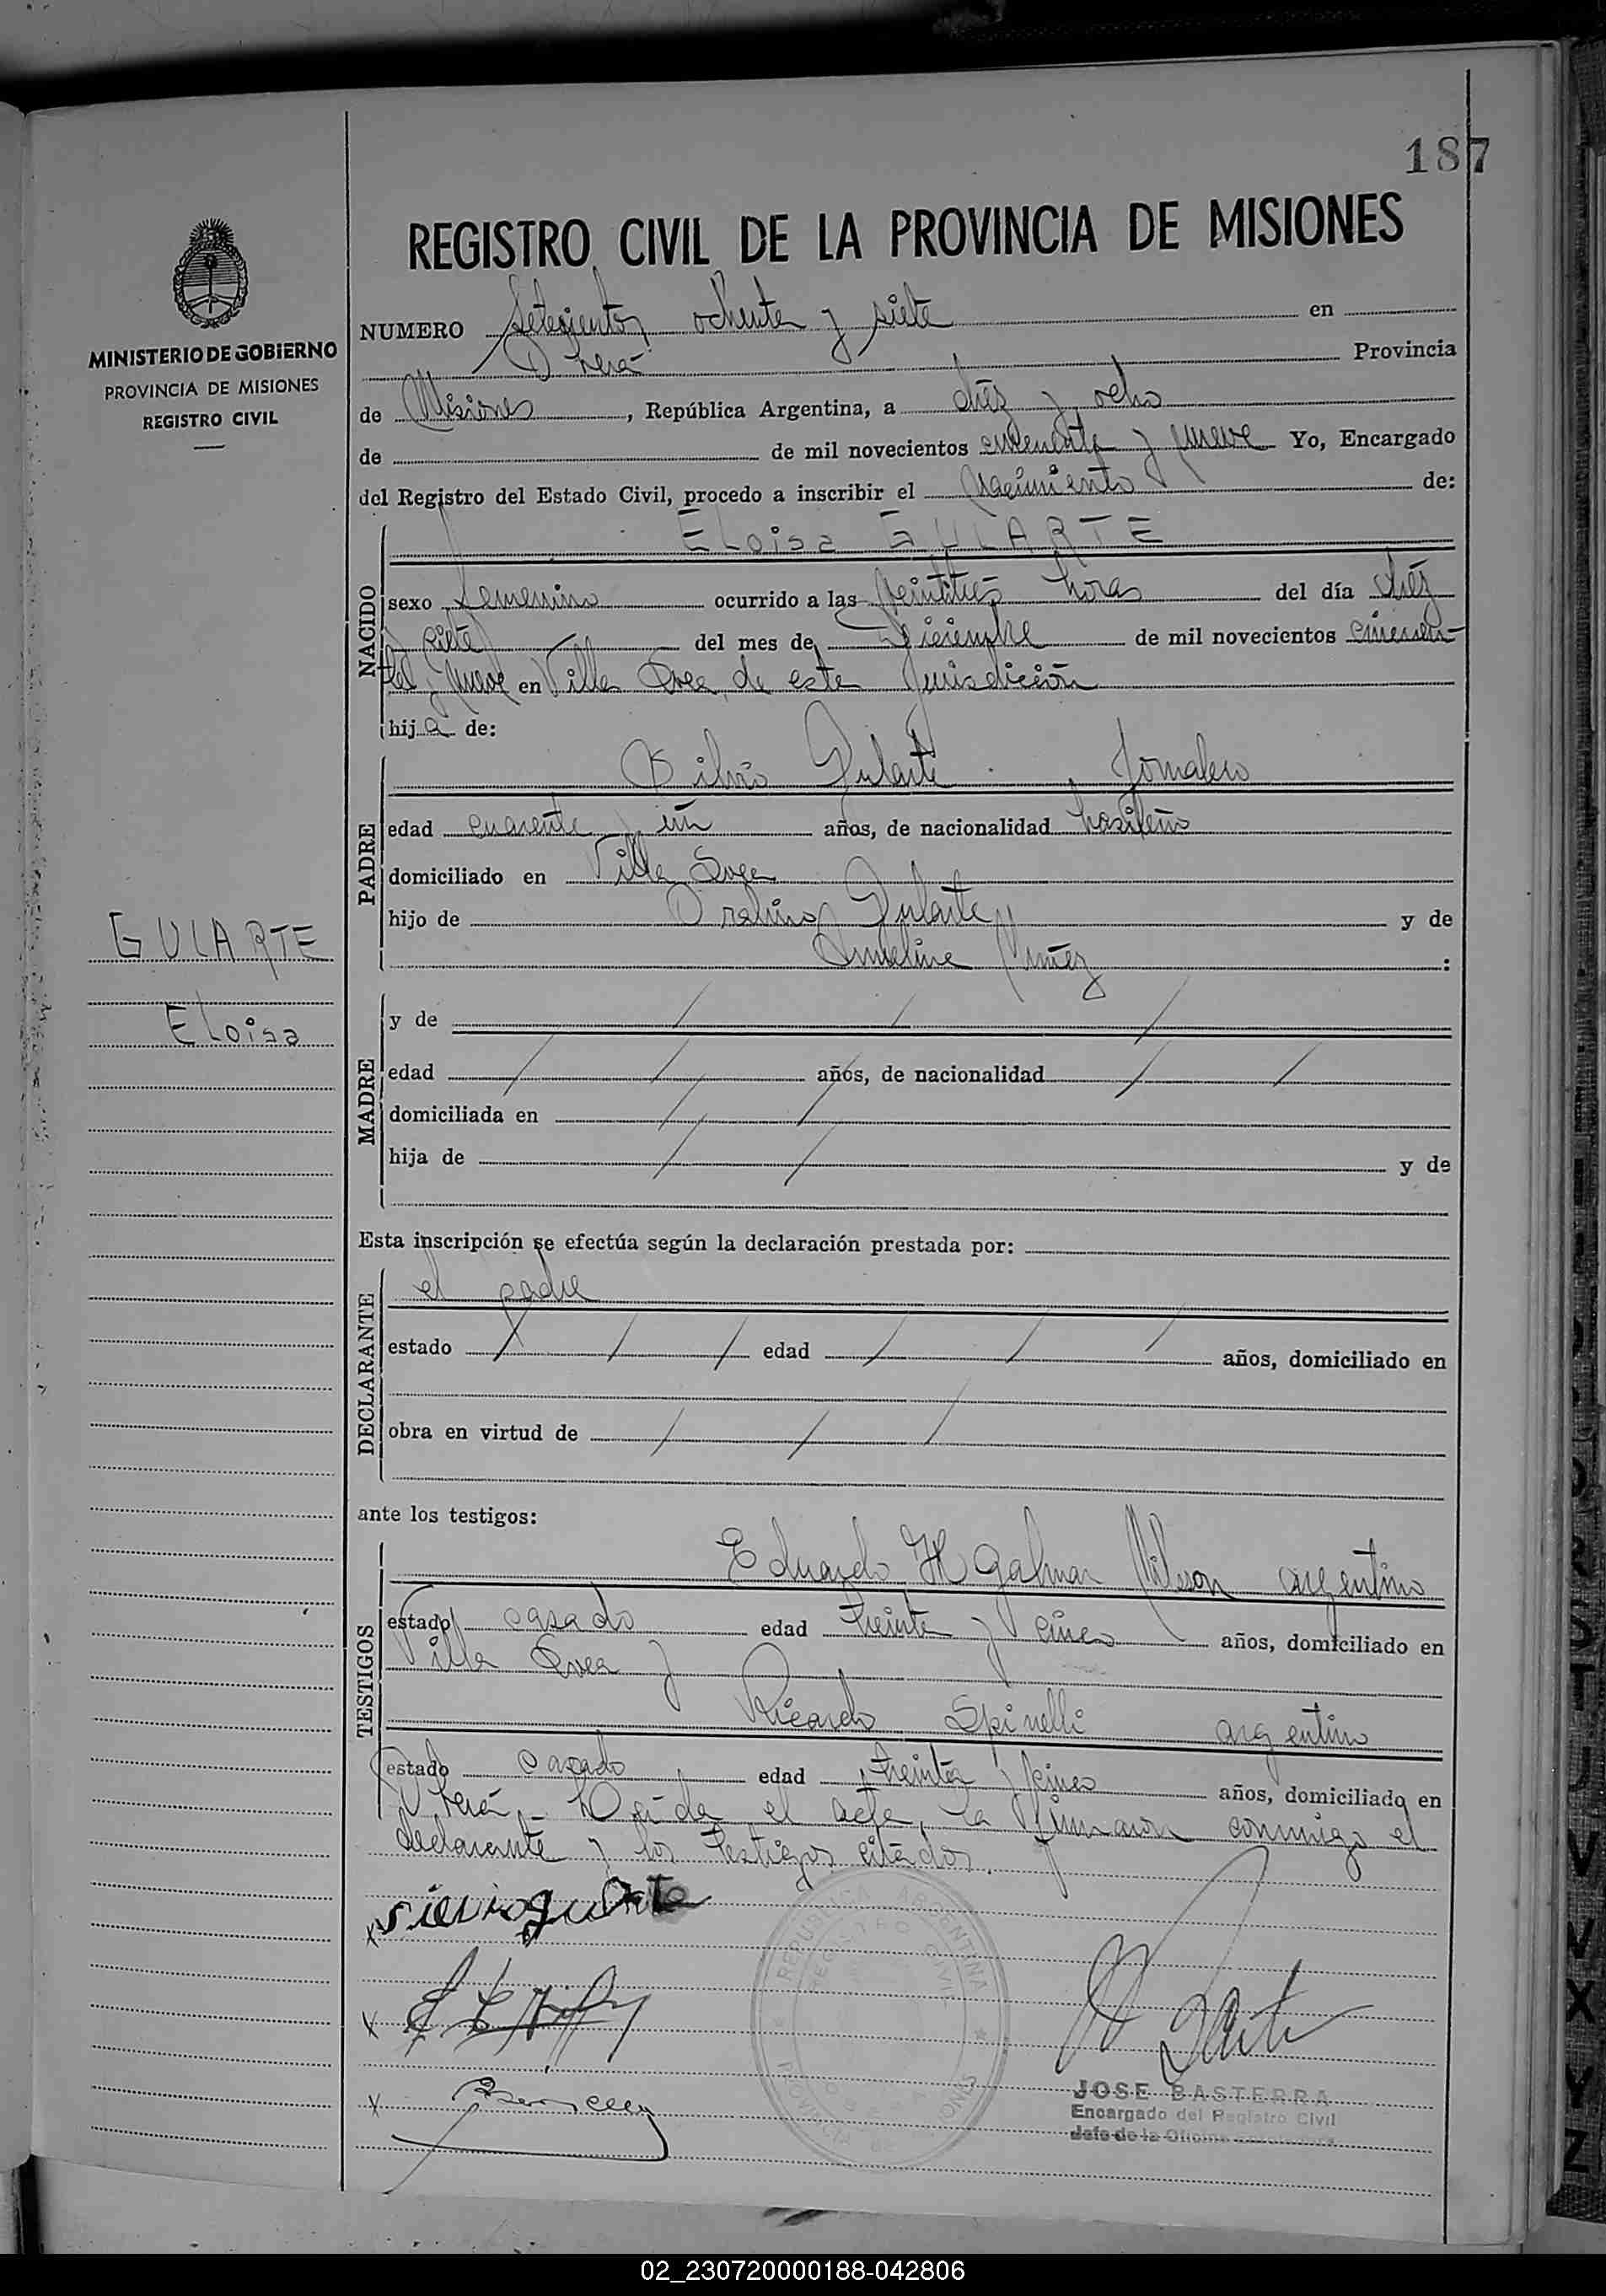 187
REGISTRO CIVIL DE LA PROVINCIA DE MISIONES
MINISTERIO DE GOBIERNO
PROVINCIA DE MISIONES
REGISTRO CIVIL
NUMERO Setecientos ochenta y siete en
Oberá Provincia
de Misiones, República Argentina, a diéz y ocho
de de mil novecientos cincuenta y nueve Yo, Encargado
del Registro del Estado Civil, procedo a inscribir el nacimiento de:
NACIDO
Eloisa GULARTE
sexo femenino ocurrido a las veintitres horas del día diéz
y siete del mes de Diciembre de mil novecientos cincuen-
ta y nueve en Villa Svea de esta jurisdicción
hija de:
PADRE
Silvio Gularte Jornalero
edad cuarenta y un años, de nacionalidad brasileño
domiciliado en Villa Svea
hijo de Gularte y de
:
GULARTE
Eloisa
MADRE
y de
edad años, de nacionalidad
domiciliada en
hija de y de
Esta inscripción se efectúa según la declaración prestada por:
DECLARANTE
el padre
estado edad años, domiciliado en
obra en virtud de
ante los testigos:
TESTIGOS
Eduardo H Galmar argentino
estado casado edad treinta y cinco años, domiciliado en
Villa Svea y
Ricardo Spinelli argentino
estado casado edad treinta y cinco años, domiciliado en
Oberá. Leída el acta, la firmaron conmigo el
declarante y los testigos citados.
x silvio gularte
x
x
REPUBLICA ARGENTINA
REGISTRO CIVIL
JOSE BASTERRA
Encargado del Registro Civil
Jefe de la Oficina
V
X
Y
Z
02_230720000188-042806